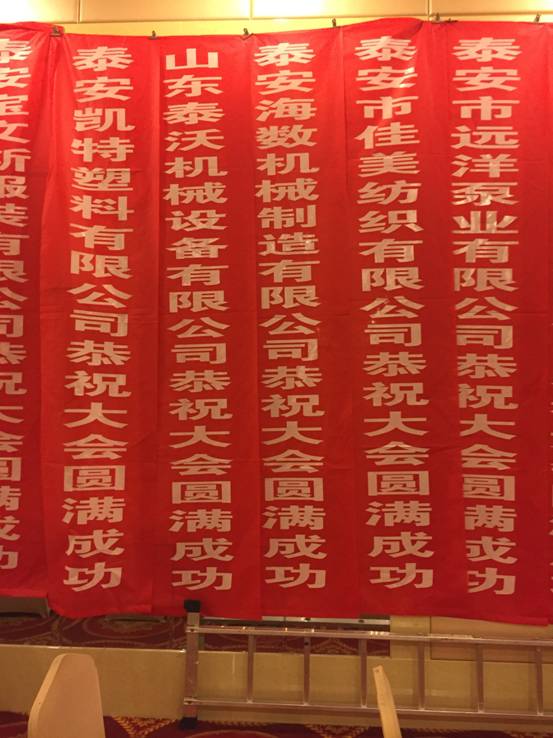 泰安市远洋泵业有限公司恭祝大会圆满成功
泰安市佳美纺织有限公司恭祝大会圆满成功
泰安海数机械制造有限公司恭祝大会圆满成功
山东泰沃机械设备有限公司恭祝大会圆满成功
泰安凯特塑料有限公司恭祝大会圆满成功
泰安宝文新服装有限公司恭祝大会圆满成功